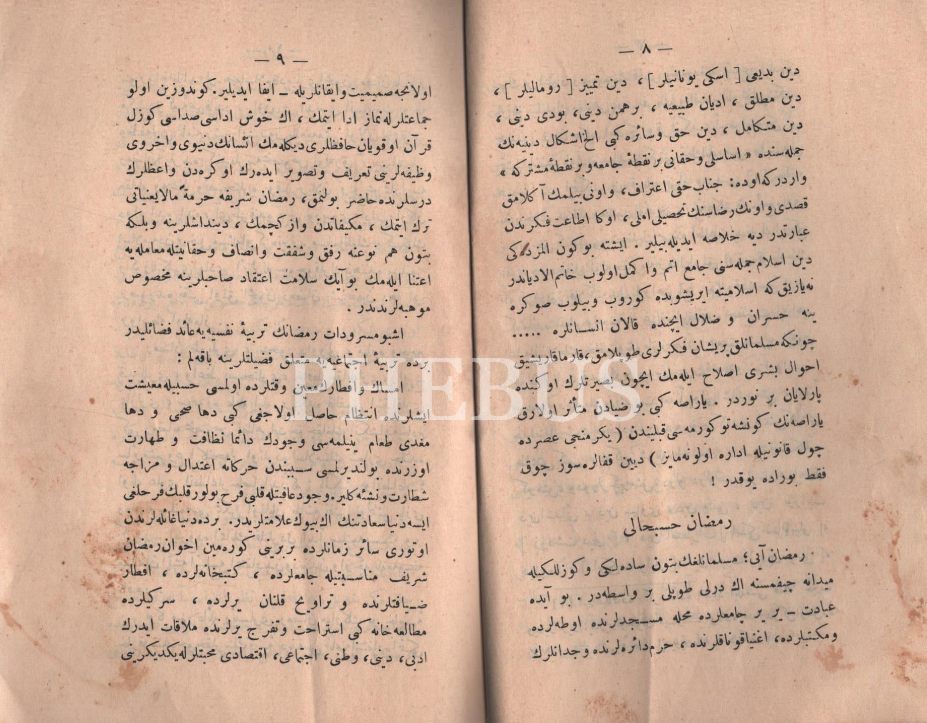 — ٨ —
دین بدیعی [ اسکی یونانیلر ] ، دین تمییز [ رومالیلر ] ،
دین مطلق ، ادیان طبیعیه ، برهمن دینی ، بودی دینی ،
دین متکامل ، دین حق وسائره کبی الخ اشکال دینیه‌نك
جمله‌سنده « اساسلی وحقانی بر نقطۀ جامعه و بر نقطۀ مشترکه »
واردرکه اوده : جناب حقی اعتراف، واونی بیلمك آکلامق
قصدی واونك رضاسنك تحصیلی املی ، اوکا اطاعت فکرندن
عبارتدر دیه خلاصه ایدیله‌بیلیر . ایشته بوکون المزده‌کی
دین اسلام جمله‌سنی جامع اتم واکمل اولوب خاتم الادیاندر
نه‌یازیق که اسلامیته ایریشوبده کوروب وبیلوب صوکره
ینه خسران و ضلال ایچنده قالان انسانلره .....
چونکه مسلمانلق پریشان فکرلری طوپلامق، قارماقاریشیق
احوال بشری اصلاح ایله‌مك ایچون بصیرتلرك اوکنده
پارلایان بر نوردر . یاراصه کبی بو ضیادن متأثر اولارق
یاراصه‌نك کونشه توکورمه‌سی قبیلندن ( یکرمنجی عصرده
چول قانونیله اداره اولونه‌مایز ) دیین قفالره سوز چوق
فقط بوراده یوقدر !
رمضان حسبحالی
رمضان آیی؛ مسلمانلغك بتون ساده‌لکی وکوزللکیله
میدانه چیقمسنه اك درلی طوپلی بر واسطه‌در . بو آیده
عبادت ـ یر یر جامعلرده محله مسجدلرنده اوطه‌لرده
ومکتبلرده ، اغنیا قوناقلرنده ، حرم دائره‌لرنده وجدانلرك
— ٩ —
اولانجه صمیمیت وایقانلریله ـ ایفا ایدیلیر. کوندوزین اولو
جماعتلرله نماز ادا ایتمك ، اك خوش اداسی صداسی کوزل
قرآن اوقویان حافظلری دیکله‌مك انسانك دنیوی واخروی
وظیفه‌لرینی تعریف وتصویر ایده‌رك اوکره‌دن واعظلرك
درسلرنده حاضر بولنمق ، رمضان شریفه حرمةً مالایعنیاتی
ترك ایتمك ، مکیفاتدن واز کچمك ، دینداشلرینه وبلکه
بتون هم نوعنه رفق وشفقت وانصاف وحقانیتله معامله‌یه
اعتنا ایله‌مك بو آیك سلامت اعتقاد صاحبلرینه مخصوص
موهبه‌لرندندر .
اشبو مسرودات رمضانك تربیۀ نفسیه‌یه عائد فضائلیدر
برده تربیۀ اجتماعیه‌یه متعلق فضیلتلرینه باقه‌لم :
امساك وافطارك معین وقتلرده اولمسی حسبیله معیشت
ایشلرنده انتظام حاصل اولاجغی کبی دها صحی و دها
مغدی طعام ینیلمه‌سی وجودك دائما نظافت و طهارت
اوزرنده بولندیرلمسی سببندن حرکاته اعتدال و مزاجه
شطارت ونشئه کلیر. وجود عافیتله قلبی فرح بولور قلبك فرحلغی
ایسه دنیا سعادتنك اك بیوك علامتلریدر. برده دنیا غائله‌لرندن
اوتوری سائر زمانلرده بربرینی کوره‌مین اخوان رمضان
شریف مناسبتیله جامعلرده ، کتبخانه‌لرده ، افطار
ضیافتلرنده و تراویح قلنان یرلرده ، سرکیلرده
مطالعه‌خانه کبی استراحت وتفرج یرلرنده ملاقات ایدرك
ادبی ، دینی ، وطنی ، اجتماعی ، اقتصادی محبتلرله یکدیکرینی
PHEBUS